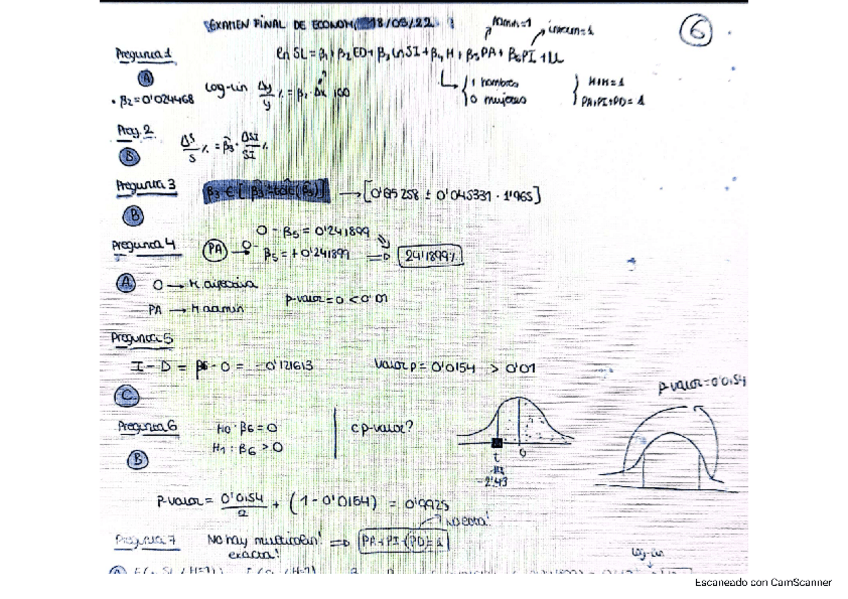 EXAMEN FINAL DE ECONOM 18/05/22
admin=1
6
ln SL = β1 + β2 ED + β3 ln SI + β4 H + β5 PA + β6 PI + U
Pregunta 1
A
· β2 = 0'024468
Log-lin Δy/y % = β · Δx 100
1 hombres
0 mujeres
H+M=1
PA+PI+PD=1
Preg. 2
B
ΔS/S % = β̂3 · ΔSI/SI %
Pregunta 3
→ [0'85258 ± 0'045331 · 1'965]
B
Pregunta 4
0 - β5 = 0'241899
PA → β5 = +0'241899 ⇒ 24'1899%
A
p-valor = 0 < 0'01
PA → H admin
Pregunta 5
I - D = β6 - 0 = -0'121613
Valor p = 0'0154 > 0'01
C
p-valor=0'0154
Pregunta 6
H0: β6 = 0
H1: β6 > 0
¿p-valor?
B
t
0
-2'43
p-valor = 0'0154/2 + (1 - 0'0154) = 0'9925
No esta!
Pregunta 7
No hay multicolin! ⇒ PA+PI+(PD)=1
exacta!
log-lin
Escaneado con CamScanner